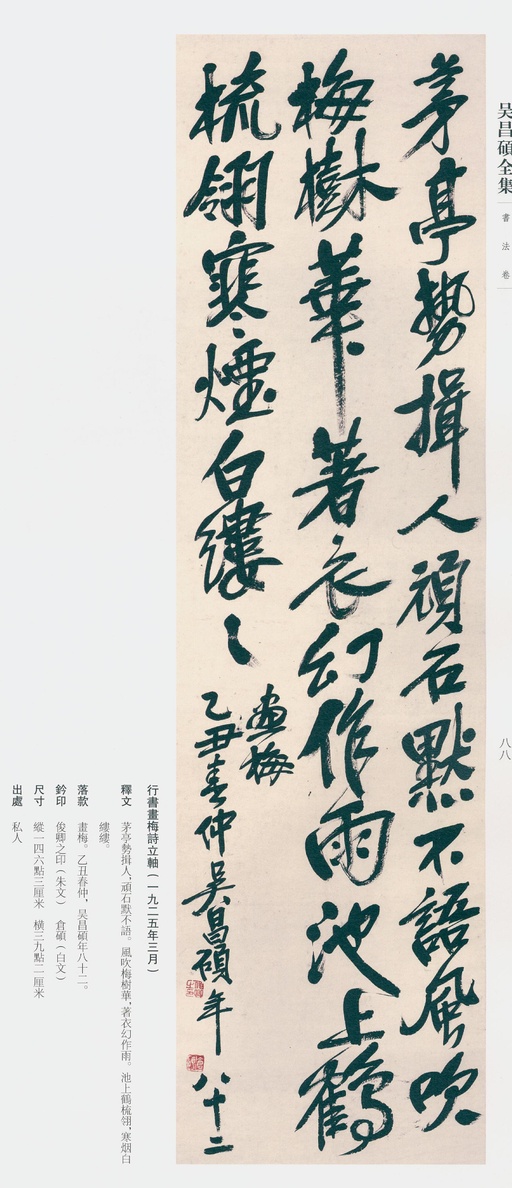 吴昌碩全集
書法卷
八八
茅亭勢揖人頑石默不語風吹
梅樹華著衣幻作雨池上鶴
梳翎寒煙白縷〻
畫梅
乙丑春仲吴昌碩年八十二
行書畫梅詩立軸（一九二五年三月）
釋文　茅亭勢揖人，頑石默不語。風吹梅樹華，著衣幻作雨。池上鶴梳翎，寒烟白
縷縷。
落款　畫梅。乙丑春仲，吴昌碩年八十二。
鈐印　俊卿之印（朱文）　倉碩（白文）
尺寸　縱一四六點三厘米　橫三九點二厘米
出處　私人